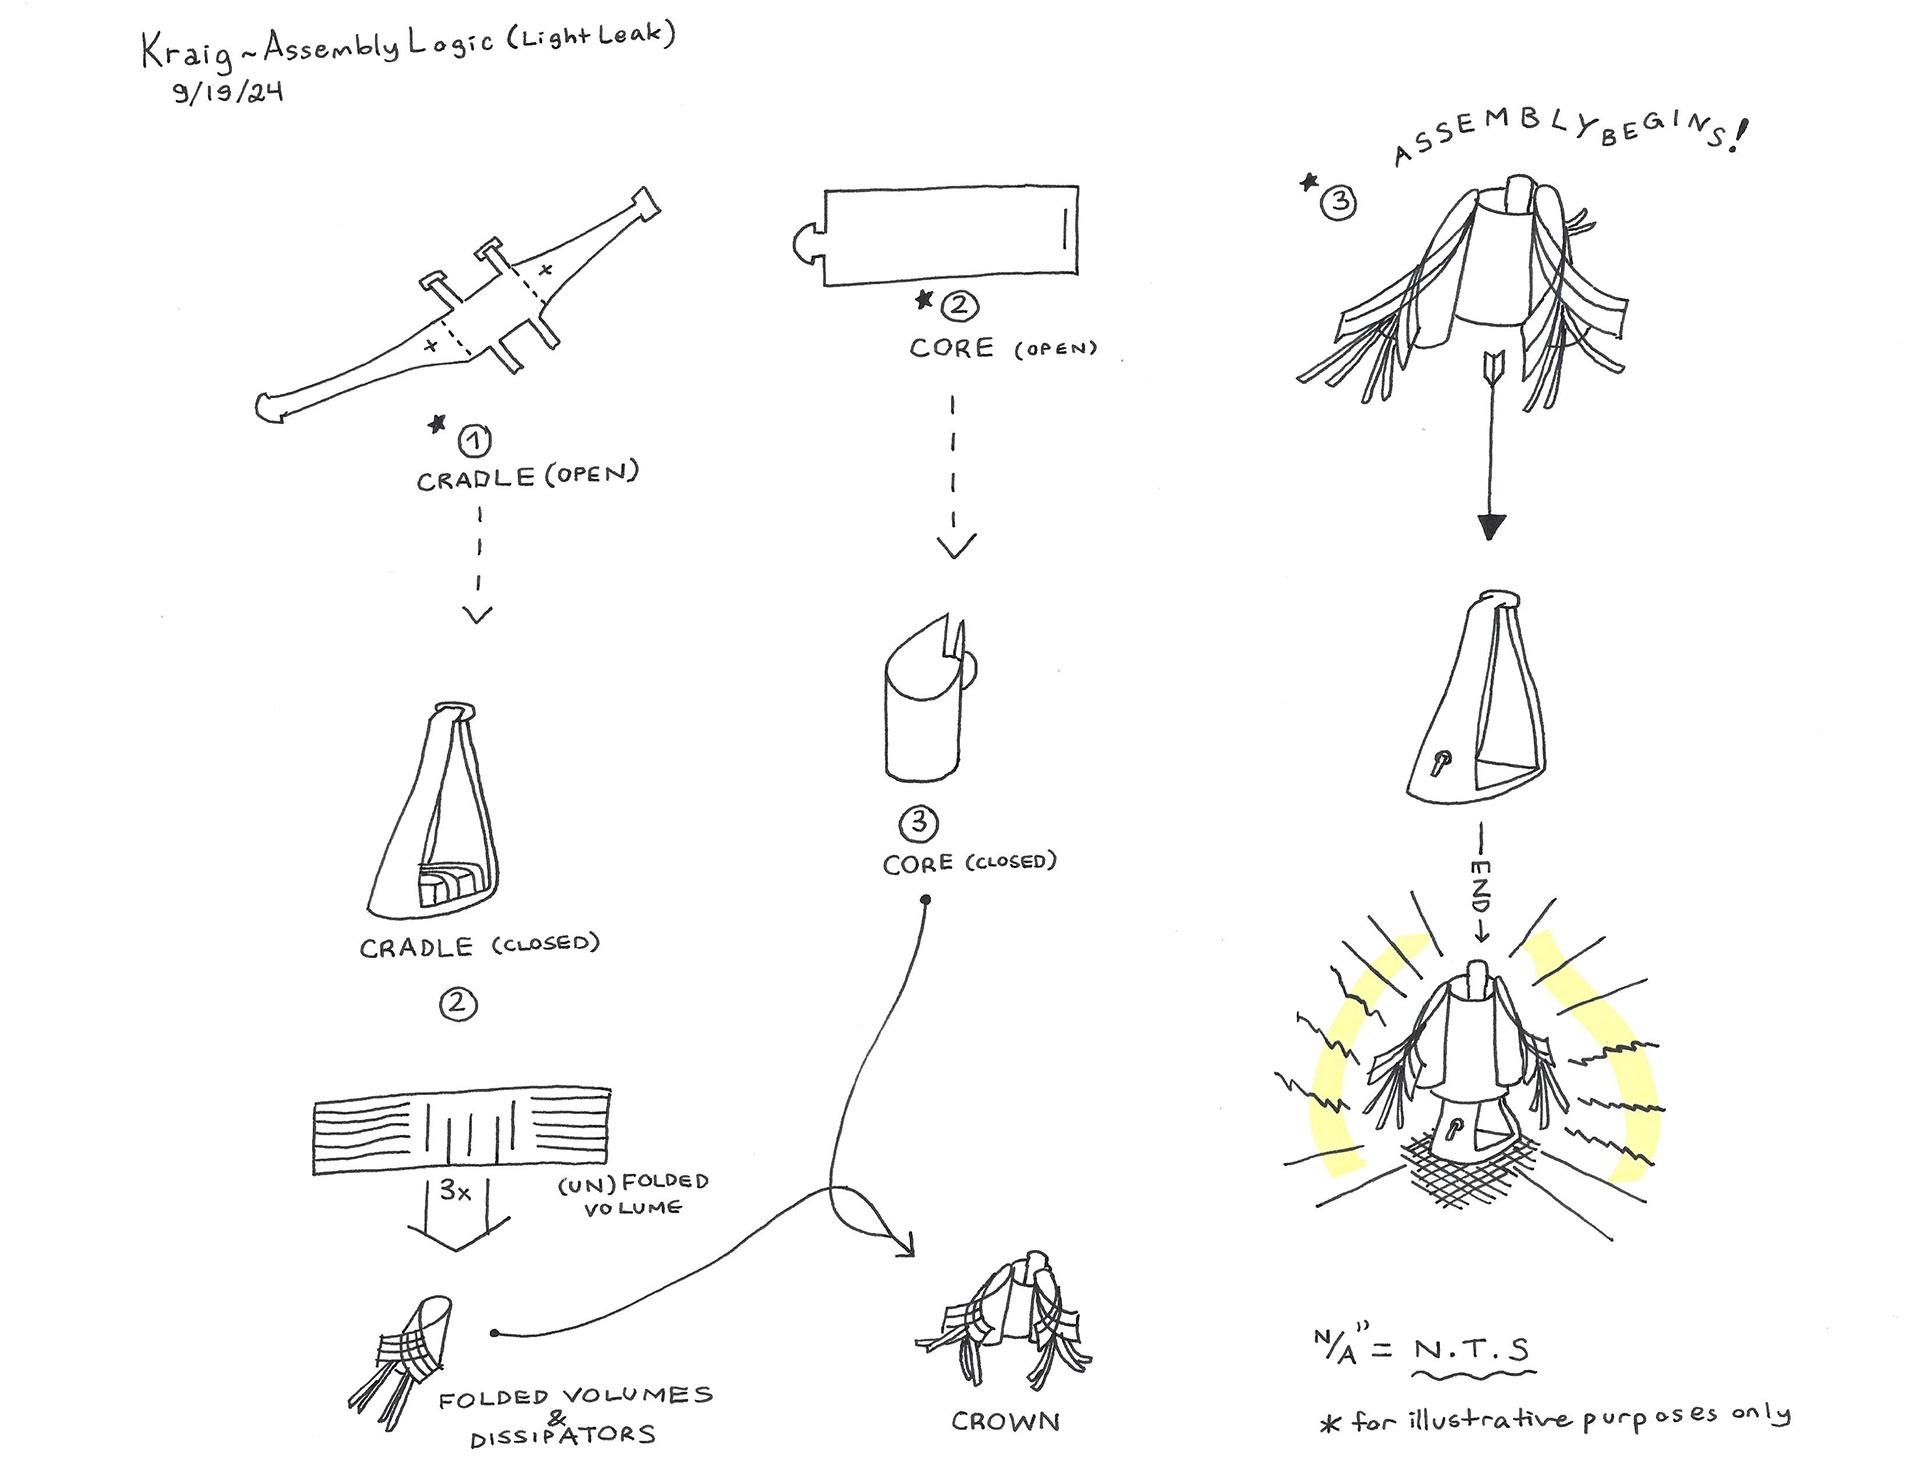 Kraig ~ Assembly Logic (Light Leak)
9/19/24
★ 1
CRADLE (OPEN)
CRADLE (CLOSED)
2
3x
(UN)FOLDED
VOLUME
FOLDED VOLUMES
&
DISSIPATORS
★ 2
CORE (OPEN)
3
CORE (CLOSED)
CROWN
ASSEMBLY BEGINS!
★ 3
END
N/A" = N.T.S
* for illustrative purposes only